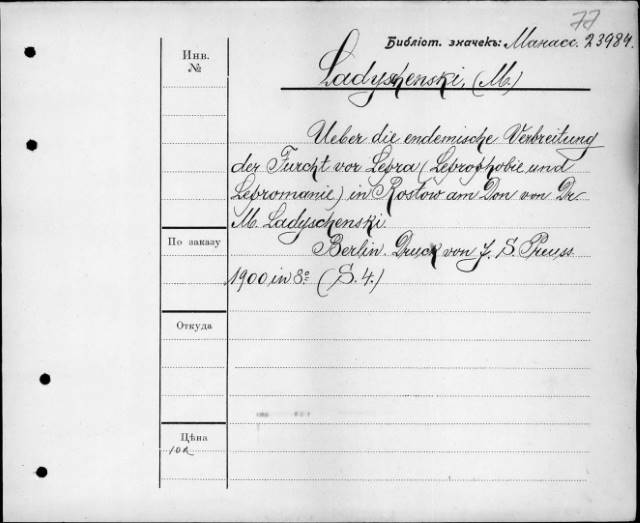 77
Библіот. значекъ: Манасс. 23984.
Инв.
№
Ladyschenski, (M.)
Ueber die endemische Verbreitung
der Furcht vor Lepra (Leprophobie und
Lepromanie) in Rostow am Don von Dr.
M. Ladyschenski.
По заказу
Berlin. Druck von J. S. Preuss
1900 in 8º (S. 4.)
Откуда
Цѣна
10к